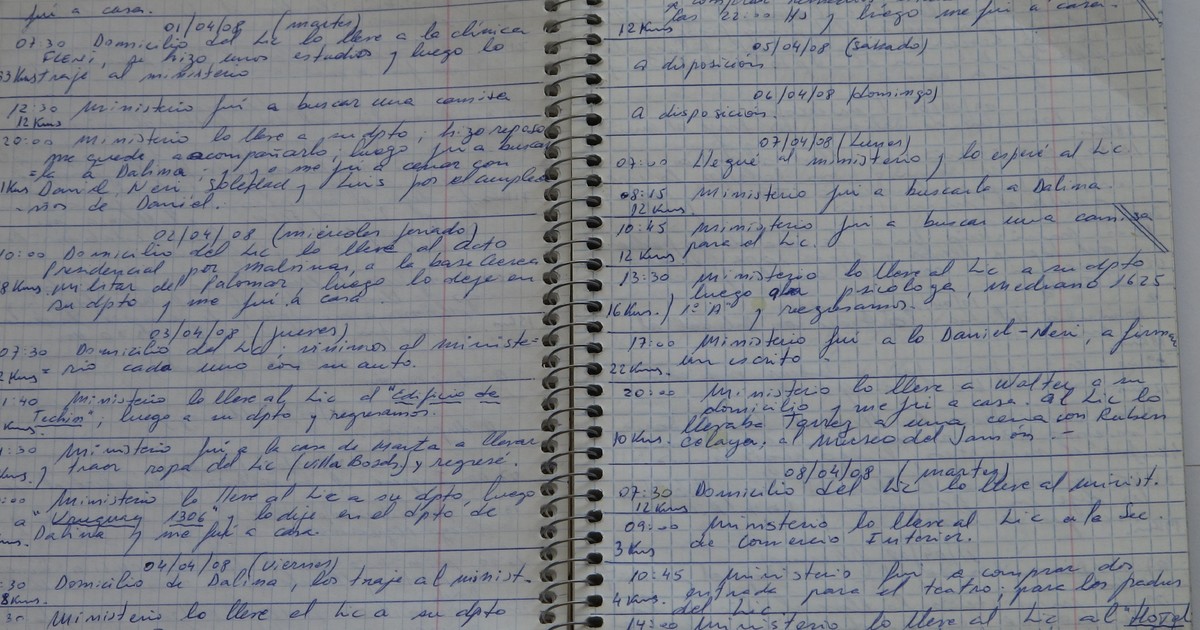 fui a casa.
01/04/08 (martes)
07:30 Domicilio del Lic lo lleve a la clínica
FLENI, se hizo unos estudios y luego lo
traje al ministerio
12:30 Ministerio fui a buscar una camisa
12 Kms
20:00 Ministerio lo lleve a su dpto, hizo reposo
me quede acompañarlo, luego fui a buscar
a Dalina, y me fui a cenar con
Daniel Neri, Soledad y Luis por el cumplea-
ños de Daniel.
02/04/08 (miércoles feriado)
10:00 Domicilio del Lic lo lleve al acto
Presidencial por malvinas, a la base Aerea
8 Kms. militar del Palomar, luego lo deje en
su dpto y me fui a casa
03/04/08 (jueves)
07:30 Domicilio del Lic, vinimos al ministe-
2 Kms = rio cada uno con su auto.
1:40 Ministerio lo lleve al Lic al "Edificio de
Techint", luego a su dpto y regresamos.
:30 Ministerio fui a la casa de Marta a llevar
Kms. y traer ropa del Lic (Villa Bosch) y regresé.
:00 Ministerio lo lleve al Lic a su dpto, luego
a "Uruguay 1306" y lo dejé en el dpto de
Dalina y me fui a casa.
04/04/08 (viernes)
:30 Domicilio de Dalina, los traje al minist.
8 Kms.
30 Ministerio lo lleve el Lic a su dpto
las 22:00 Hs y luego me fui a casa.
12 Kms
05/04/08 (sábado)
a disposición.
06/04/08 (domingo)
a disposición.
07/04/08 (Lunes)
07:00 Llegué al ministerio y lo esperé al Lic.
08:15 Ministerio fui a buscarla a Dalina.
12 Kms.
10:45 Ministerio fui a buscar una camisa
para el Lic.
12 Kms
13:30 Ministerio lo lleve al Lic a su dpto
luego a la psicóloga, medrano 1625
16 Kms. 1º "A" y regresamos.
17:00 Ministerio fui a lo Daniel-Neri, a firmar
un escrito -
22 Kms.
20:00 Ministerio lo lleve a Walter a su
domicilio y me fui a casa. al Lic lo
llevaba Torres a una cena con Ruben
10 Kms. Celaya, al Museo del Jamón. -
08/04/08 (martes)
07:30 Domicilio del Lic lo lleve al minist.
12 Kms
09:00 Ministerio lo lleve al Lic a la Sec.
3 Kms de Comercio Interior.
10:45 Ministerio fui a comprar dos
4 Kms. entrada para el teatro, para los padres
del Lic.
14:00 Ministerio lo lleve al Lic al "Hotel